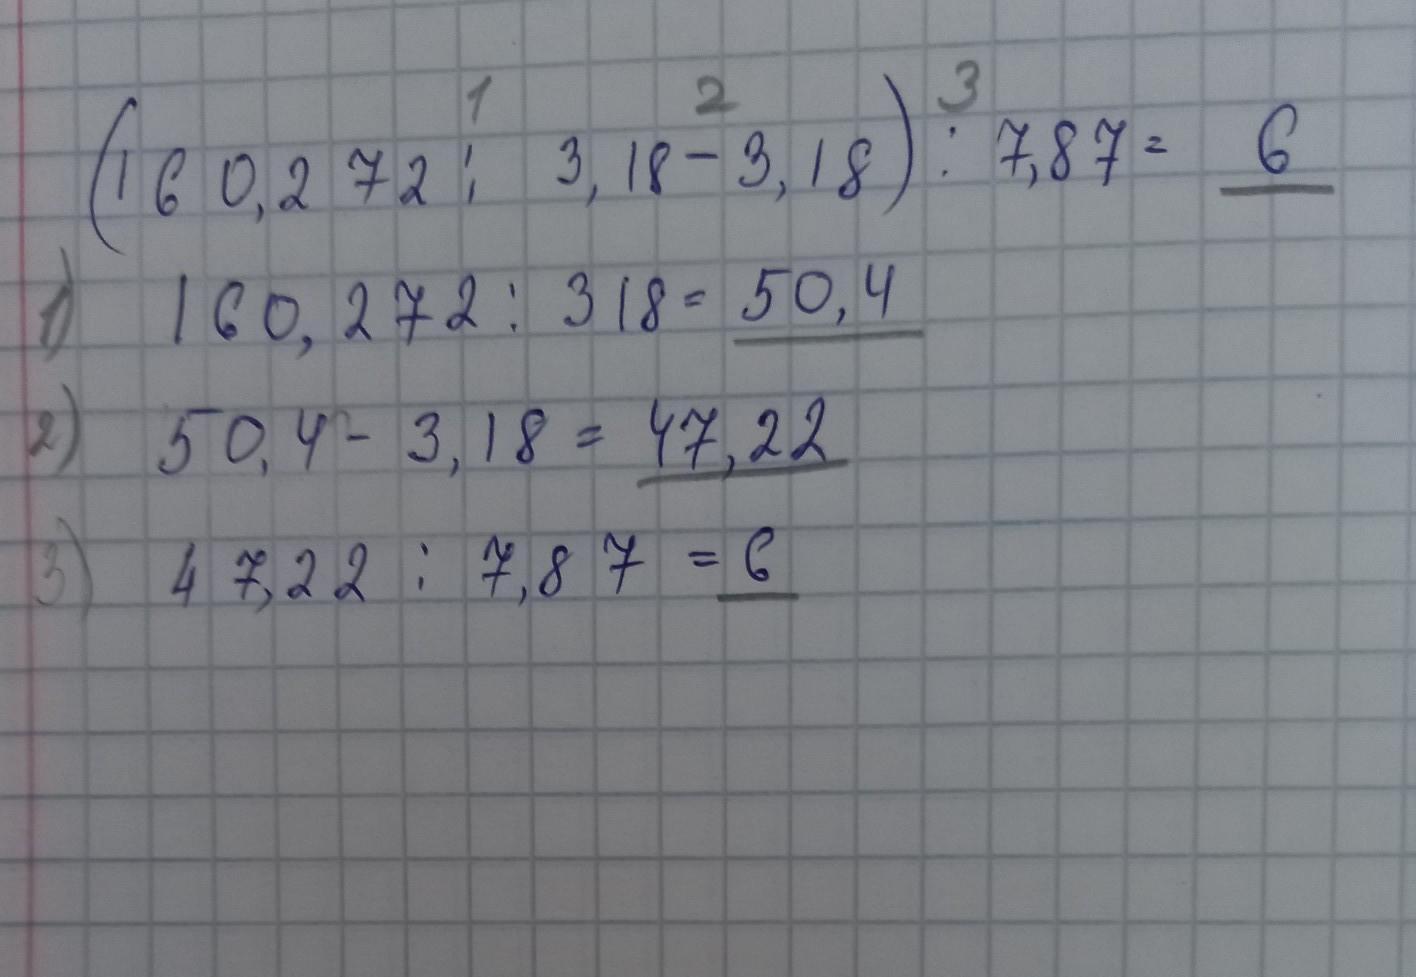 1 2 3
(160,272 : 3,18 - 3,18) : 7,87 = 6
1) 160,272 : 318 = 50,4
2) 50,4 - 3,18 = 47,22
3) 47,22 : 7,87 = 6